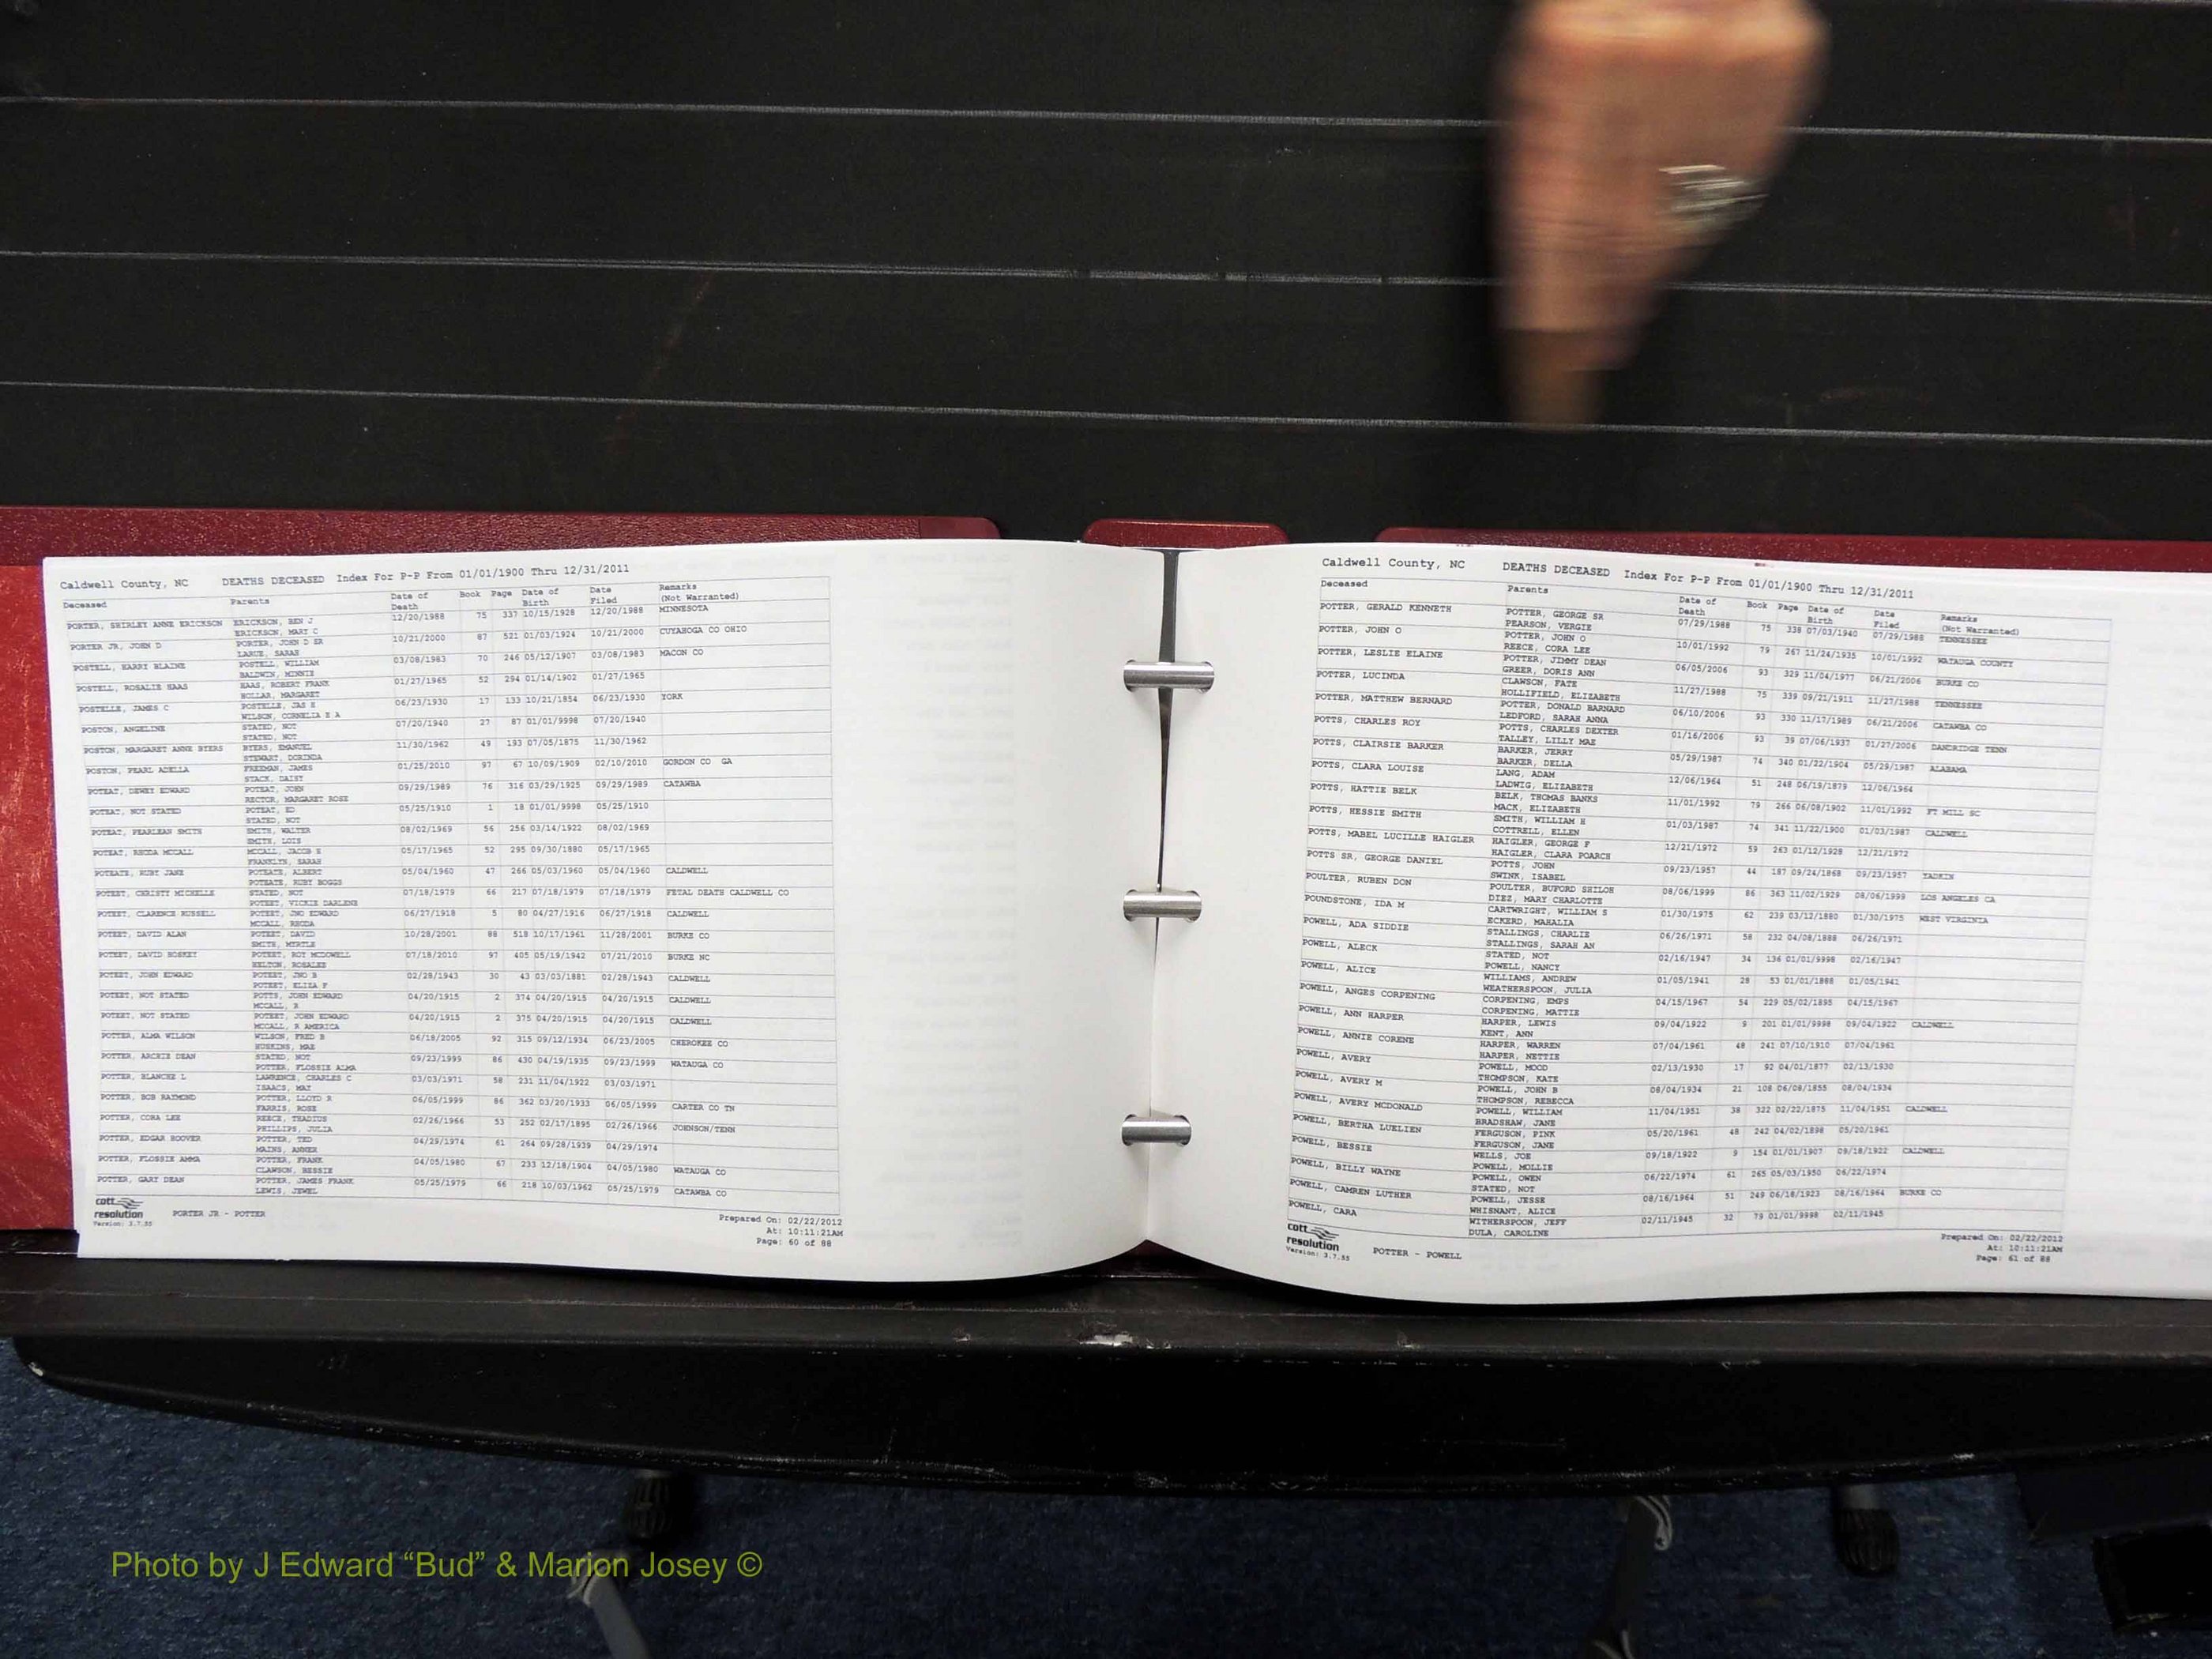 Caldwell County, NC DEATHS DECEASED Index For P-P From 01/01/1900 Thru 12/31/2011
Deceased Parents Date of Death Book Page Date of Birth Date Filed Remarks (Not Warranted)
PORTER, SHIRLEY ANNE ERICKSON ERICKSON, BEN J 12/20/1988 75 337 10/15/1928 12/20/1988 MINNESOTA
ERICKSON, MARY C
PORTER JR, JOHN D PORTER, JOHN D SR 10/21/2000 87 521 01/03/1924 10/21/2000 CUYAHOGA CO OHIO
LARUE, SARAH
POSTELL, HARRY BLAINE POSTELL, WILLIAM 03/08/1983 70 246 05/12/1907 03/08/1983 MACON CO
BALDWIN, MINNIE
POSTELL, ROSALIE HAAS HAAS, ROBERT FRANK 01/27/1965 52 294 01/14/1902 01/27/1965
HOLLAR, MARGARET
POSTELLE, JAMES C POSTELLE, JAS H 06/23/1930 17 133 10/21/1854 06/23/1930 YORK
WILSON, CORNELIA E A
POSTON, ANGELINE STATED, NOT 07/20/1940 27 87 01/01/9998 07/20/1940
STATED, NOT
POSTON, MARGARET ANNE BYERS BYERS, EMANUEL 11/30/1962 49 193 07/05/1875 11/30/1962
STEWART, DORINDA
POSTON, PEARL ADELLA FREEMAN, JAMES 01/25/2010 97 67 10/09/1909 02/10/2010 GORDON CO GA
STACK, DAISY
POTEAT, DEWEY EDWARD POTEAT, JOHN 09/29/1989 76 316 03/29/1925 09/29/1989 CATAWBA
RECTOR, MARGARET ROSE
POTEAT, NOT STATED POTEAT, ED 05/25/1910 1 18 01/01/9998 05/25/1910
STATED, NOT
POTEAT, PEARLEAN SMITH SMITH, WALTER 08/02/1969 56 256 03/14/1922 08/02/1969
SMITH, LOIS
POTEAT, RHODA MCCALL MCCALL, JACOB E 05/17/1965 52 295 09/30/1880 05/17/1965
FRANKLYN, SARAH
POTEATE, RUBY JANE POTEATE, ALBERT 05/04/1960 47 266 05/03/1960 05/04/1960 CALDWELL
POTEATE, RUBY BOGGS
POTEET, CHRISTY MICHELLE STATED, NOT 07/18/1979 66 217 07/18/1979 07/18/1979 FETAL DEATH CALDWELL CO
POTEET, VICKIE DARLENE
POTEET, CLARENCE RUSSELL POTEET, JNO EDWARD 06/27/1918 5 80 04/27/1916 06/27/1918 CALDWELL
MCCALL, RHODA
POTEET, DAVID ALAN POTEET, DAVID 10/28/2001 88 518 10/17/1961 11/28/2001 BURKE CO
SMITH, MYRTLE
POTEET, DAVID HOSKEY POTEET, ROY MCDOWELL 07/18/2010 97 405 05/19/1942 07/21/2010 BURKE NC
HELTON, ROSALEE
POTEET, JOHN EDWARD POTEET, JNO B 02/28/1943 30 43 03/03/1881 02/28/1943 CALDWELL
POTEET, ELIZA F
POTEET, NOT STATED POTTS, JOHN EDWARD 04/20/1915 2 374 04/20/1915 04/20/1915 CALDWELL
MCCALL, R
POTEET, NOT STATED POTEET, JOHN EDWARD 04/20/1915 2 375 04/20/1915 04/20/1915 CALDWELL
MCCALL, R AMERICA
POTTER, ALMA WILSON WILSON, FRED B 06/18/2005 92 315 09/12/1934 06/23/2005 CHEROKEE CO
HUSKINS, MAE
POTTER, ARCHIE DEAN STATED, NOT 09/23/1999 86 430 04/19/1935 09/23/1999 WATAUGA CO
POTTER, FLOSSIE ALMA
POTTER, BLANCHE L LAWRENCE, CHARLES C 03/03/1971 58 231 11/04/1922 03/03/1971
ISAACS, MAY
POTTER, BOB RAYMOND POTTER, LLOYD R 06/05/1999 86 362 03/20/1933 06/05/1999 CARTER CO TN
FARRIS, ROSE
POTTER, CORA LEE REECE, THADIUS 02/26/1966 53 252 02/17/1895 02/26/1966 JOHNSON/TENN
PHILLIPS, JULIA
POTTER, EDGAR HOOVER POTTER, TED 04/29/1974 61 264 09/28/1939 04/29/1974
MAINS, ANNER
POTTER, FLOSSIE AMMA POTTER, FRANK 04/05/1980 67 233 12/18/1904 04/05/1980 WATAUGA CO
CLAWSON, BESSIE
POTTER, GARY DEAN POTTER, JAMES FRANK 05/25/1979 66 218 10/03/1962 05/25/1979 CATAWBA CO
LEWIS, JEWEL
cott
resolution
Version: 3.7.55
PORTER JR - POTTER
Prepared On: 02/22/2012
At: 10:11:21AM
Page: 60 of 88
Caldwell County, NC DEATHS DECEASED Index For P-P From 01/01/1900 Thru 12/31/2011
Deceased Parents Date of Death Book Page Date of Birth Date Filed Remarks (Not Warranted)
POTTER, GERALD KENNETH POTTER, GEORGE SR 07/29/1988 75 338 07/03/1940 07/29/1988 TENNESSEE
PEARSON, VERGIE
POTTER, JOHN O POTTER, JOHN O 10/01/1992 79 267 11/24/1935 10/01/1992 WATAUGA COUNTY
REECE, CORA LEE
POTTER, LESLIE ELAINE POTTER, JIMMY DEAN 06/05/2006 93 329 11/04/1977 06/21/2006 BURKE CO
GREER, DORIS ANN
POTTER, LUCINDA CLAWSON, FATE 11/27/1988 75 339 09/21/1911 11/27/1988 TENNESSEE
HOLLIFIELD, ELIZABETH
POTTER, MATTHEW BERNARD POTTER, DONALD BARNARD 06/10/2006 93 330 11/17/1989 06/21/2006 CATAWBA CO
LEDFORD, SARAH ANNA
POTTS, CHARLES ROY POTTS, CHARLES DEXTER 01/16/2006 93 39 07/06/1937 01/27/2006 DANDRIDGE TENN
TALLEY, LILLY MAE
POTTS, CLAIRSIE BARKER BARKER, JERRY 05/29/1987 74 340 01/22/1904 05/29/1987 ALABAMA
BARKER, DELLA
POTTS, CLARA LOUISE LANG, ADAM 12/06/1964 51 248 06/19/1879 12/06/1964
LADWIG, ELIZABETH
POTTS, HATTIE BELK BELK, THOMAS BANKS 11/01/1992 79 266 06/08/1902 11/01/1992 FT MILL SC
MACK, ELIZABETH
POTTS, HESSIE SMITH SMITH, WILLIAM H 01/03/1987 74 341 11/22/1900 01/03/1987 CALDWELL
COTTRELL, ELLEN
POTTS, MABEL LUCILLE HAIGLER HAIGLER, GEORGE F 12/21/1972 59 263 01/12/1928 12/21/1972
HAIGLER, CLARA POARCH
POTTS SR, GEORGE DANIEL POTTS, JOHN 09/23/1957 44 187 09/24/1868 09/23/1957 YADKIN
SWINK, ISABEL
POULTER, RUBEN DON POULTER, BUFORD SHILOH 08/06/1999 86 363 11/02/1929 08/06/1999 LOS ANGELES CA
DIEZ, MARY CHARLOTTE
POUNDSTONE, IDA M CARTWRIGHT, WILLIAM S 01/30/1975 62 239 03/12/1880 01/30/1975 WEST VIRGINIA
ECKERD, MAHALIA
POWELL, ADA SIDDIE STALLINGS, CHARLIE 06/26/1971 58 232 04/08/1888 06/26/1971
STALLINGS, SARAH AN
POWELL, ALECK STATED, NOT 02/16/1947 34 136 01/01/9998 02/16/1947
POWELL, NANCY
POWELL, ALICE WILLIAMS, ANDREW 01/05/1941 28 53 01/01/1868 01/05/1941
WEATHERSPOON, JULIA
POWELL, ANGES CORPENING CORPENING, EMPS 04/15/1967 54 229 05/02/1895 04/15/1967
CORPENING, MATTIE
POWELL, ANN HARPER HARPER, LEWIS 09/04/1922 9 201 01/01/9998 09/04/1922 CALDWELL
KENT, ANN
POWELL, ANNIE CORENE HARPER, WARREN 07/04/1961 48 241 07/10/1910 07/04/1961
HARPER, NETTIE
POWELL, AVERY POWELL, MOOD 02/13/1930 17 92 04/01/1877 02/13/1930
THOMPSON, KATE
POWELL, AVERY M POWELL, JOHN B 08/04/1934 21 108 06/08/1855 08/04/1934
THOMPSON, REBECCA
POWELL, AVERY MCDONALD POWELL, WILLIAM 11/04/1951 38 322 02/22/1875 11/04/1951 CALDWELL
BRADSHAW, JANE
POWELL, BERTHA LUELIEN FERGUSON, PINK 05/20/1961 48 242 04/02/1898 05/20/1961
FERGUSON, JANE
POWELL, BESSIE WELLS, JOE 09/18/1922 9 154 01/01/1907 09/18/1922 CALDWELL
POWELL, MOLLIE
POWELL, BILLY WAYNE POWELL, OWEN 06/22/1974 61 265 05/03/1950 06/22/1974
STATED, NOT
POWELL, CAMREN LUTHER POWELL, JESSE 08/16/1964 51 249 06/18/1923 08/16/1964 BURKE CO
WHISNANT, ALICE
POWELL, CARA WITHERSPOON, JEFF 02/11/1945 32 79 01/01/9998 02/11/1945
DULA, CAROLINE
cott
resolution
Version: 3.7.55
POTTER - POWELL
Prepared On: 02/22/2012
At: 10:11:21AM
Page: 61 of 88
Photo by J Edward “Bud” & Marion Josey ©